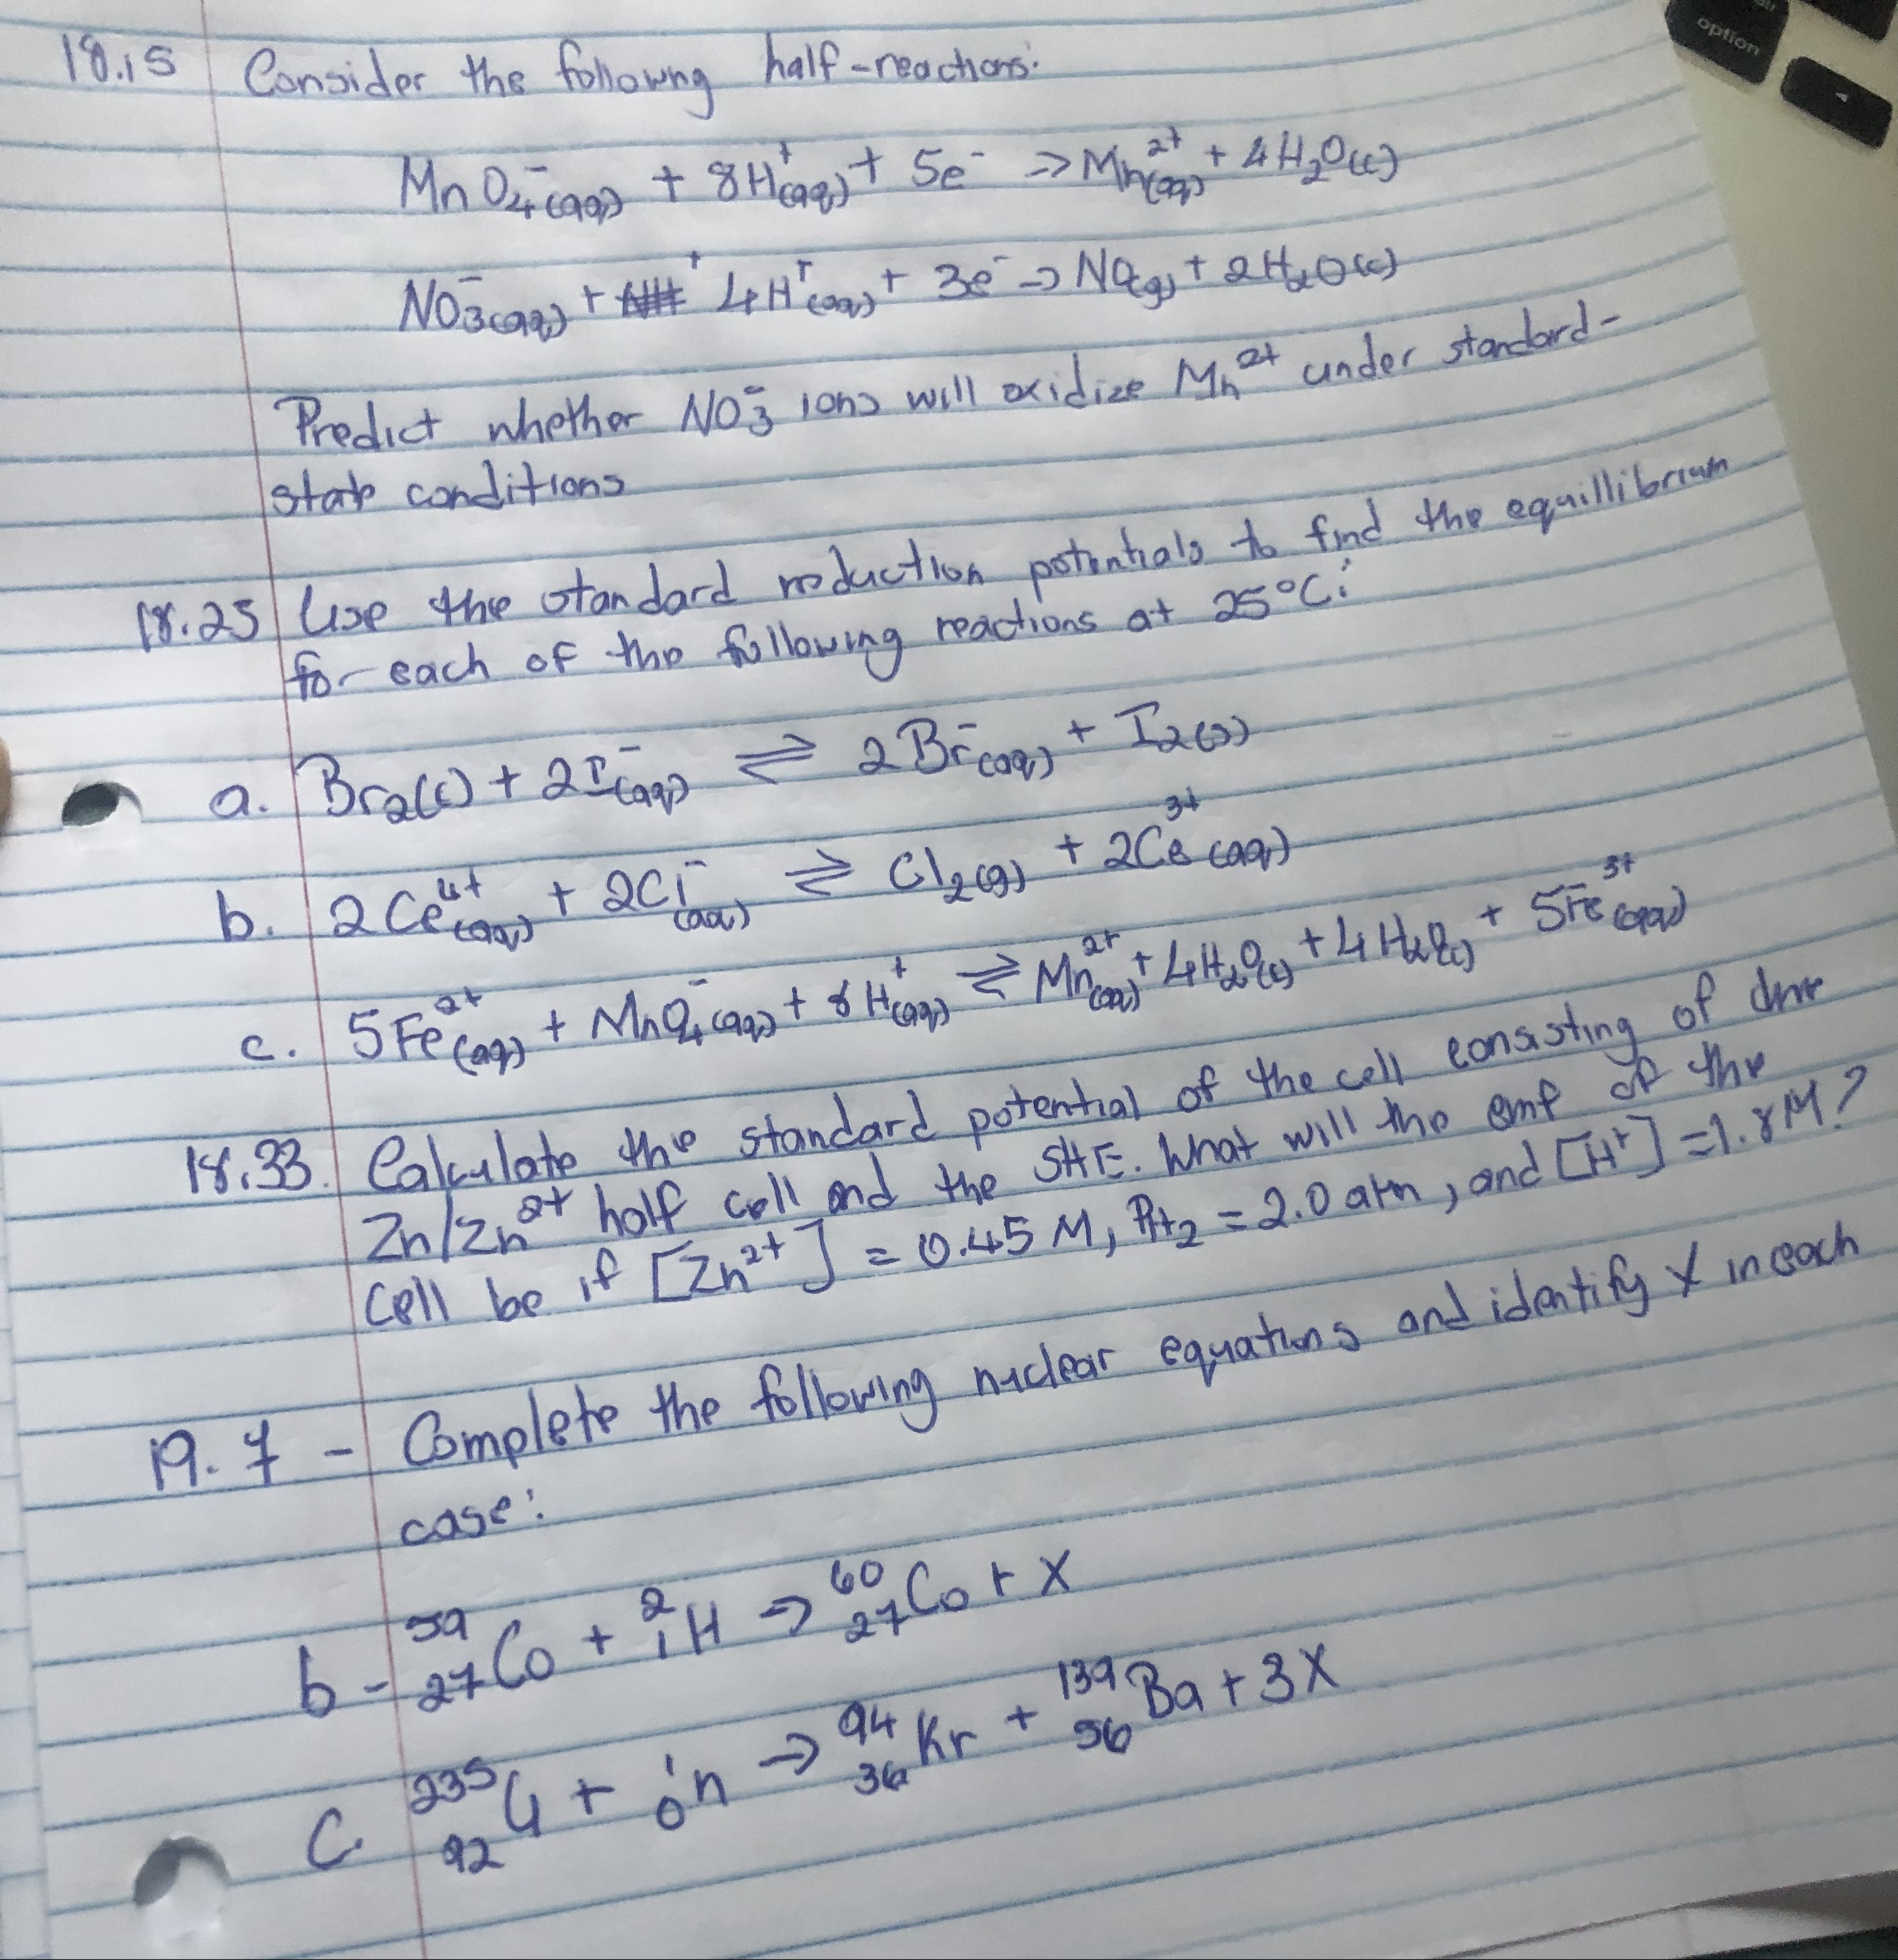 option
18.15 Consider the following half-reactions:
MnO₄⁻(aq) + 8H⁺(aq) + 5e⁻ → Mn²⁺(aq) + 4H₂O(l)
NO₃⁻(aq) + 4H⁺(aq) + 3e⁻ → NO(g) + 2H₂O(l)
Predict whether NO₃⁻ ions will oxidize Mn²⁺ under standard-
state conditions
18.25 Use the standard reduction potentials to find the equillibrium
for each of the following reactions at 25°C:
a. Br₂(l) + 2I⁻(aq) ⇌ 2Br⁻(aq) + I₂(s)
b. 2Ce⁴⁺(aq) + 2Cl⁻(aq) ⇌ Cl₂(g) + 2Ce³⁺(aq)
c. 5Fe²⁺(aq) + MnO₄⁻(aq) + 8H⁺(aq) ⇌ Mn²⁺(aq) + 4H₂O(l) + 4H₂O(l) + 5Fe³⁺(aq)
18.33. Calculate the standard potential of the cell consisting of
Zn/Zn²⁺ half cell and the SHE. What will the emf of the
cell be if [Zn²⁺] = 0.45 M, PH₂ = 2.0 atm, and [H⁺] = 1.8M?
19.7 - Complete the following nuclear equations and identify X in each
case:
b - ⁵⁹₂₇Co + ²₁H → ⁶⁰₂₇Co + X
C. ²³⁵₉₂U + ¹₀n → ⁹⁴₃₆Kr + ¹³⁹₅₆Ba + 3X